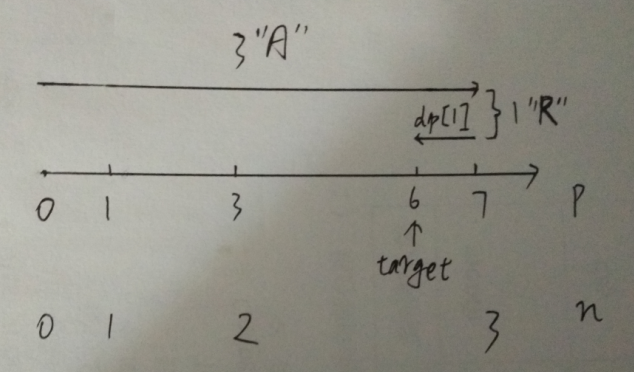 3 "A"
dp[1] } 1 "R"
0 1 3 6 7 P
↑
target
0 1 2 3 n